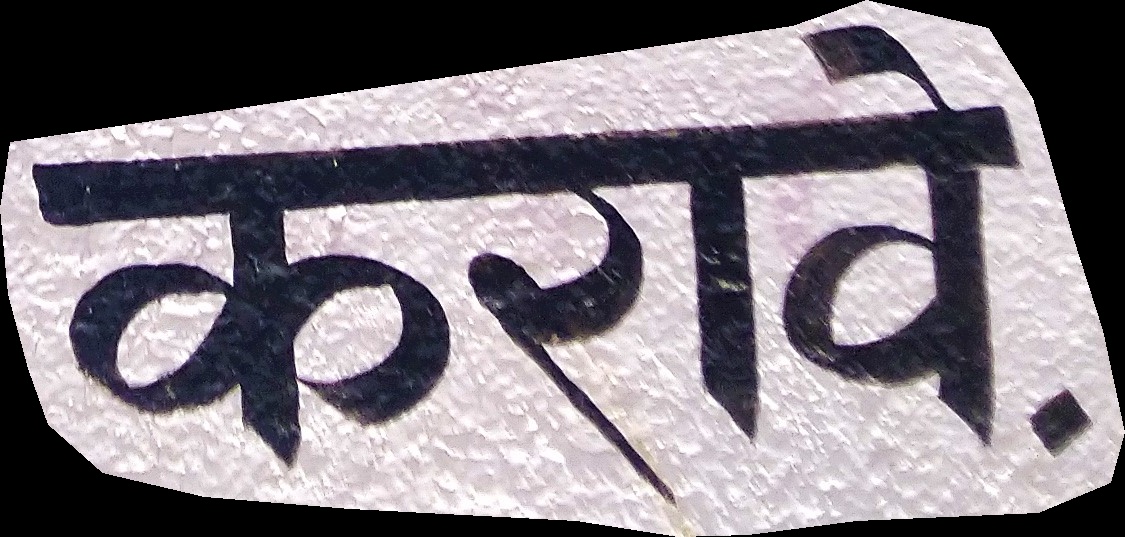 करावे.